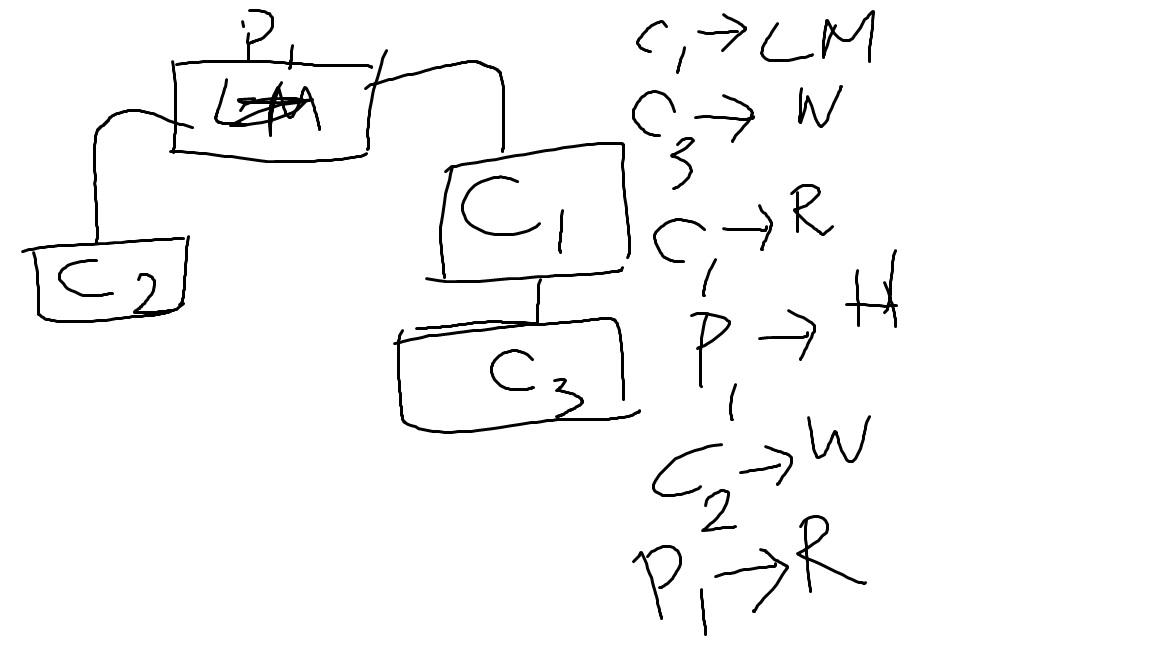 P1
C1
C2
C3
C1 → LM
C3 → W
C1 → R
P1 → H
C2 → W
P1 → R